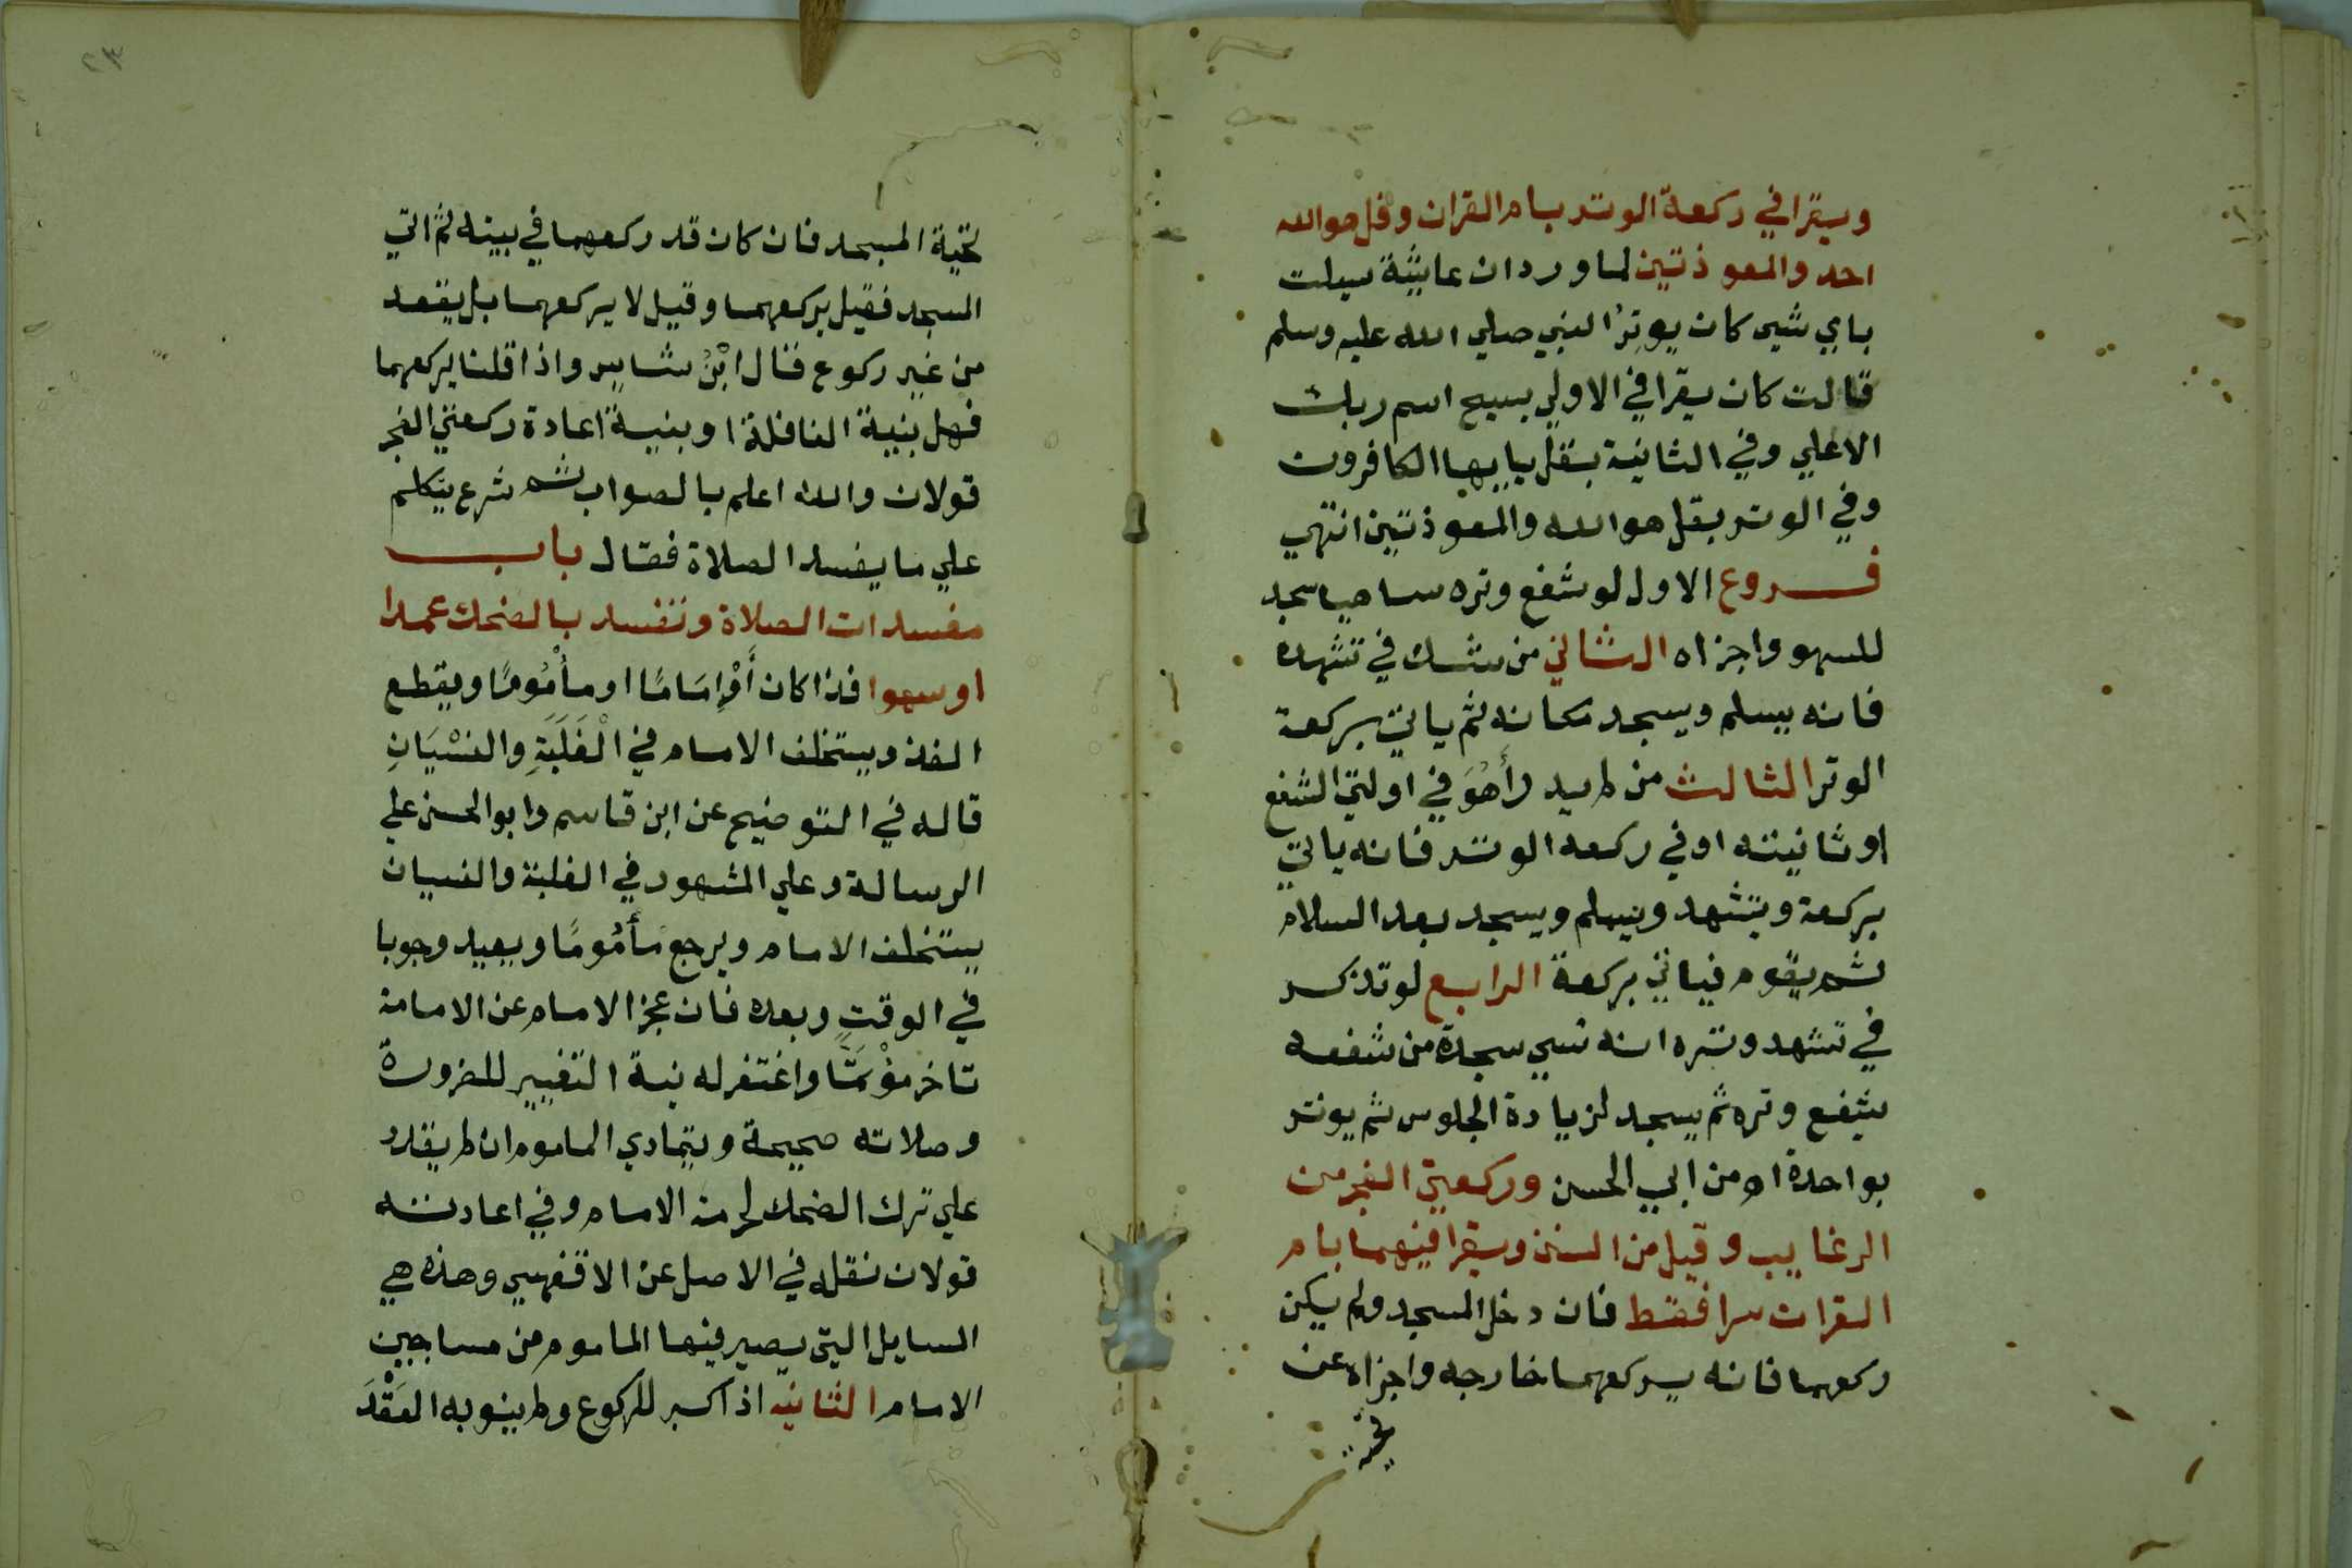 ويقرا في ركعة الوتر بام القران وقل هو الله
احد والمعوذتين لما ورد ان عايشة سيلت
باي شي كان يوتر النبي صلي الله عليه وسلم
قالت كان يقرا في الاولي بسبح اسم ربك
الاعلي وفي الثانية بقل يايها الكافرون
وفي الوتر بقل هو الله والمعوذتين انتهي
فروع الاول لو شفع وتره ساهيا سجد
للسهو واجزاه الثاني من شك في تشهده
فانه يسلم ويسجد مكانه ثم ياتي بركعة
الوتر الثالث من لم يدر أهُوَ في اولتي الشفع
او ثانيته او في ركعه الوتر فانه ياتي
بركعة ويتشهد ويسلم ويسجد بعد السلام
ثم يقوم فياتي بركعة الرابع لو تذكر
في تشهد وتره انه نسي سجدة من شفعه
شفع وتره ثم يسجد لزيادة الجلوس ثم يوتر
بواحدة اه من ابي الحسن وركعتي الفجر من
الرغايب وقيل من السنن ويقرا فيهما بام
القران سرا فقط فان دخل المسجد ولم يكن
ركعهما فانه يركعهما خارجه واجزاه عن
تحية
٢٣
تحية المسجد فان كان قد ركعهما في بيته ثم اتي
المسجد فقيل يركعهما وقيل لا يركعهما بل يقعد
من غير ركوع فقال ابْنُ شاس واذا قلنا يركعهما
فهل بنية النافلة او بنية اعادة ركعتي الفجر
قولان والله اعلم بالصواب ثم شرع يتكلم
علي ما يفسد الصلاة فقال باب
مفسدات الصلاة وتفسد بالضحك عمدا
او سهوا فذا كان أوْ إمَامًا او مأْمُومًا ويقطع
الفذ ويستخلف الامام في الْغَلَبَةِ والنسْيَانِ
قاله في التوضيح عن ابن قاسم وابو الحسن علي
الرسالة وعلي المشهور في الغلبة والنسيان
يستخلف الامام ويرجع مَأمُومًا ويعيد وجوبا
في الوقت وبعده فان عجز الامام عن الامامة
تاخر مؤْتمًّا واغتفر له نية التغيير للضرورة
وصلاته صحيحة ويتمادي الماموم ان لم يقدر
علي ترك الضحك لحرمة الامام وفي اعادته
قولان نقله في الاصل عن الاقفهسي وهذه هي
المسايل التي يصير فيها الماموم من مساجين
الامام الثانية اذا كبر للركوع ولم ينو به العَقْدَ